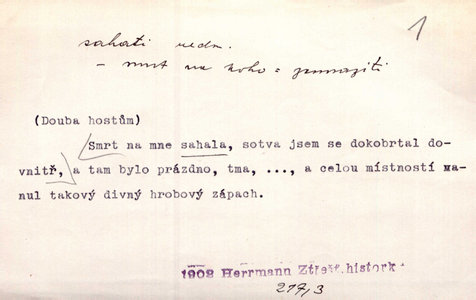 1
sahati nedn.
– smrt na koho = zamraziti
(Douba hostům)
Smrt na mne sahala, sotva jsem se dokobrtal do-
vnitř, a tam bylo prázdno, tma, ..., a celou místností va-
nul takový divný hrobový zápach.
1908 Herrmann Ztřešt. histork
217,3